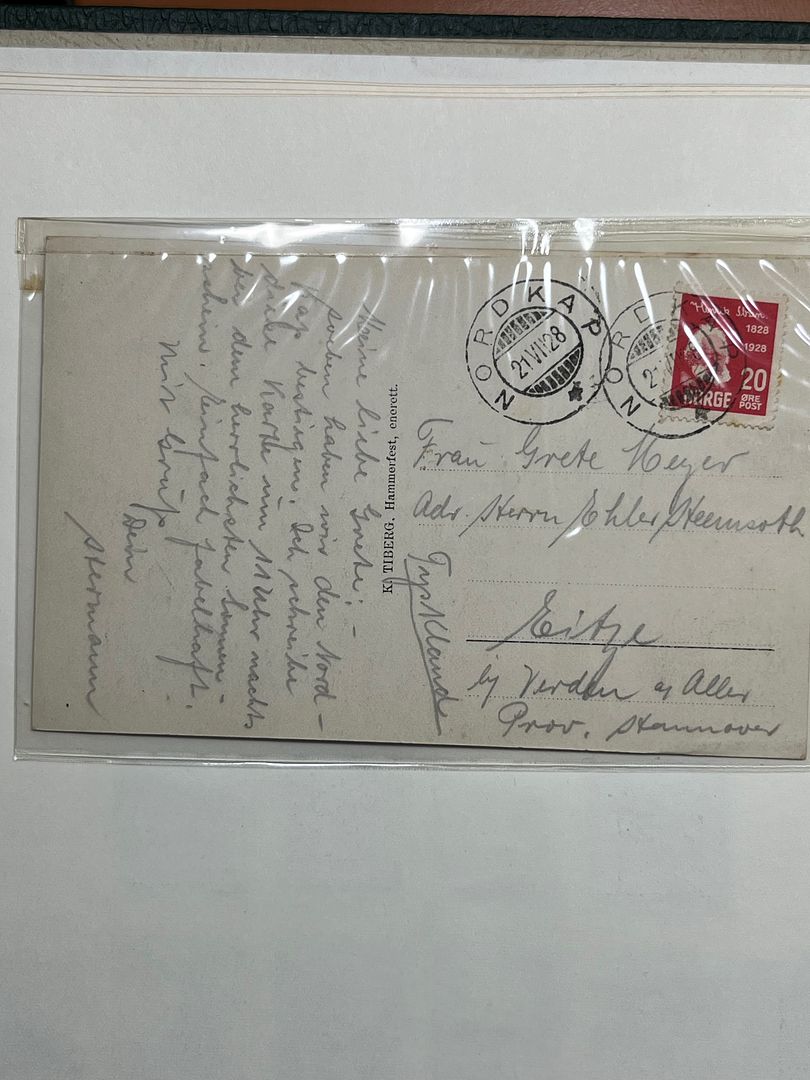 Meine liebe Grete! –
soeben haben wir den Nord–
kap bestiegen. Ich schreibe
diese Karte um 11 Uhr nachts
bei dem herrlichsten Sonnen–
schein. Einfach fabelhaft.
Mit Gruß
Dein
Hermann
K. TIBERG, Hammerfest, enerett.
NORDKAP
21 VII 28
NORDK
Henrik Ibsen.
1828
1928
20
NORGE ØRE
POST
Frau Grete Meyer
Adr. Herrn Ehler Heemsoth
Eitze
bj Verden a/ Aller
Prov. Hannover
Tyskland